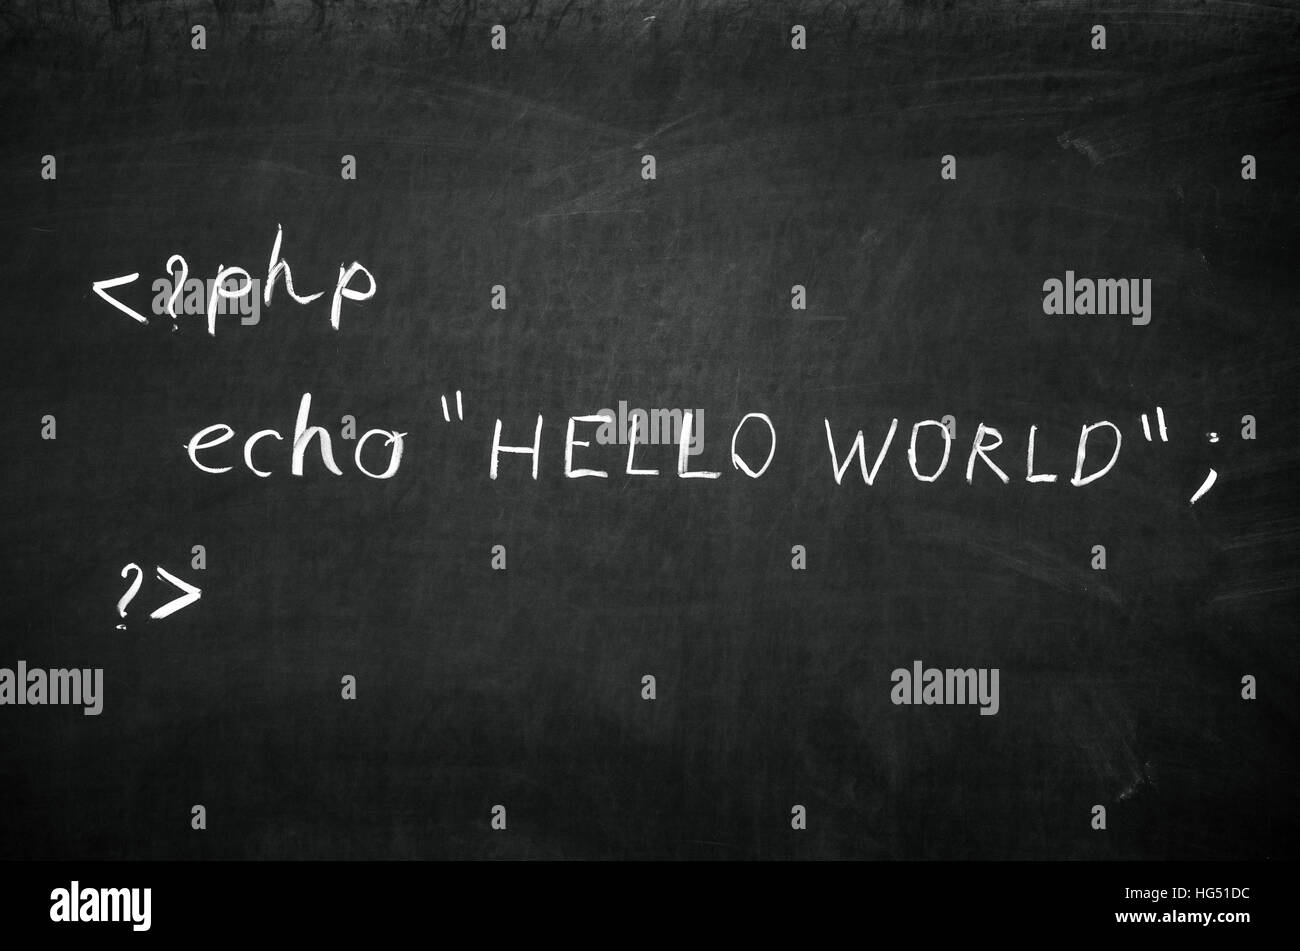 <?php
echo "HELLO WORLD";
?>
a alamy
alamy
Image ID: HG51DC
www.alamy.com